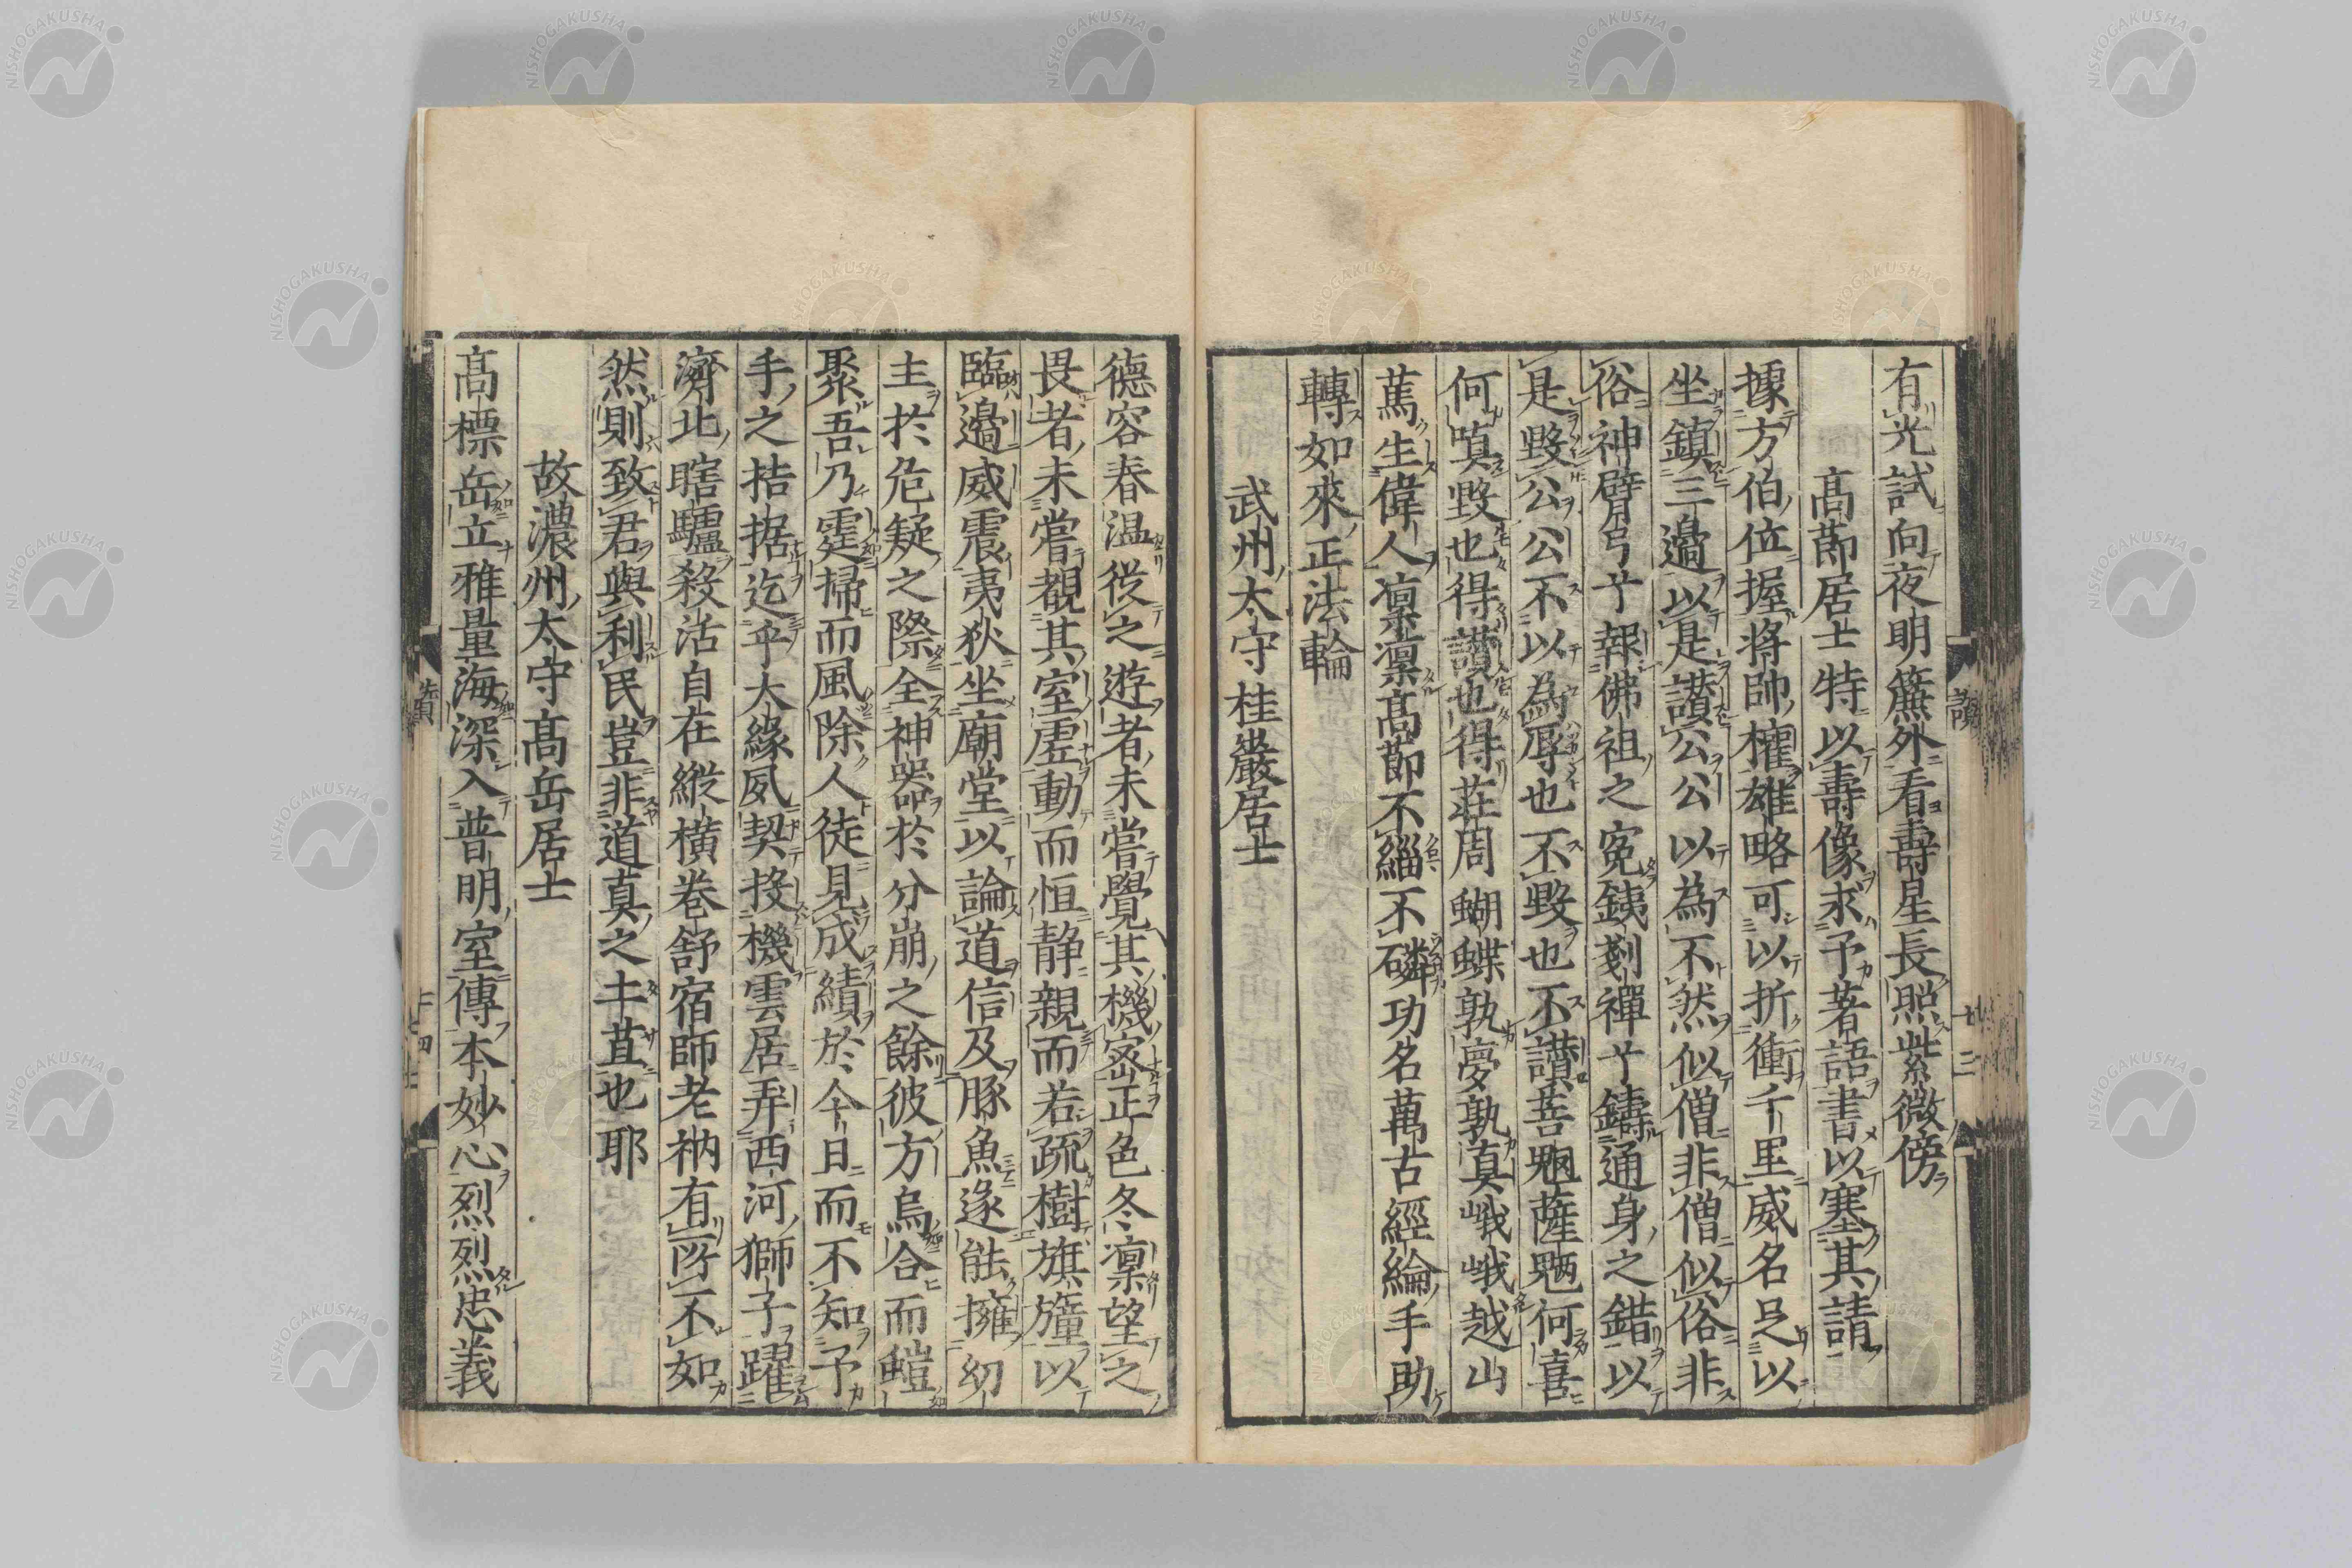 有光試向夜明簾外看壽星長照紫微傍
髙莭居士特以壽像求予著語書以塞其請
據方伯位握將帥權雄略可以折衝千里威名足以
坐鎮三邉以是讃公公以為不然似僧非僧似俗非
俗神臂弓兮報佛祖之寃銕剗禪兮鑄通身之錯以
是毀公公不以為辱也不毀也不讃菩䰟薩䰟何喜
何嗔毀也得讃也得莊周蝴蝶孰夢孰真峨峨越山
蔦生偉人凛凛髙莭不緇不磷功名萬古經綸手助
轉如來正法輪
武州太守桂巖居士
德容春温從之遊者未嘗覺其機宻正色冬凛望之
畏者未嘗覩其室虚動而恒静親而若疏樹旗旜以
臨邉威震夷狄坐廟堂以論道信及豚魚遂能擁幼
主於危疑之際全神器於分崩之餘彼方烏合而螘
聚吾乃霆掃而風除人徒見成績於今日而不知予
手之拮据迄乎大緣夙契投機雲居弄西河獅子躍
濟北瞎驢殺活自在縱横巻舒宿師老衲有所不如
然則致君與利民豈非道真之土苴也耶
故濃州太守髙岳居士
髙標岳立雅量海深入普明室傳本妙心烈烈忠義
讃
七三
讃
七四
NISHOGAKUSHA